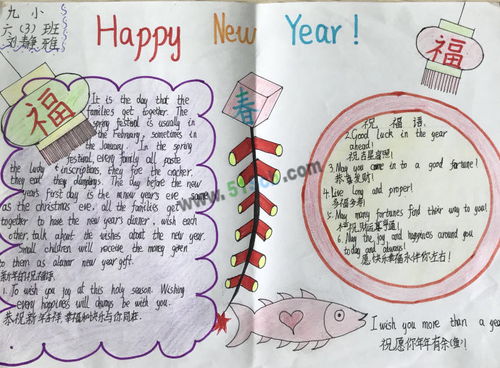 九小
六(3)班
Happy New Year!
福
福
春
It is the day that the
families get together. The
spring festival is usually in
the February, sometimes in
the January. In the spring
festival, every family all paste
the lucky inscriptions, they fire the cracker,
they eat they dumplings. The day before the new
years First day is the new years eve, same
as the christmas eve, all the families get
together to have the new years dinner, wish each
other talk about the wishes about the new year.
Small children will receive the money given
to them as alunar new year gift.
新年的祝福语.
1. To wish you joy at this holy season. Wishing
every happiness will always be with you.
恭祝新年吉祥,幸福和快乐与你同在.
祝福语.
2.Good luck in the year
ahead!
祝吉星高照!
3.May you come in to a good fortune!
恭喜发财!
4.Live long and proper!
多福多寿!
5.May many fortunes find their way to you!
祝财运亨通!
6.May the joy and happiness around you
today and always!
愿快乐幸福永伴你左右!
I wish you more than a
祝愿你年年有余(鱼)